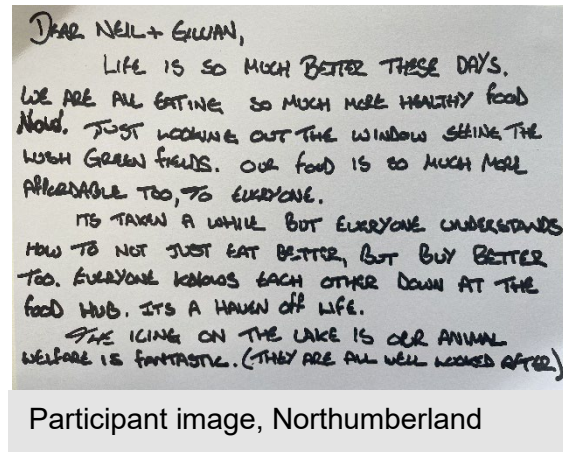 DEAR NEIL + GILLIAN,
LIFE IS SO MUCH BETTER THESE DAYS.
WE ARE ALL EATING SO MUCH MORE HEALTHY FOOD
NOW. JUST LOOKING OUT THE WINDOW SEEING THE
LUSH GREEN FIELDS. OUR FOOD IS SO MUCH MORE
AFFORDABLE TOO, TO EVERYONE.
ITS TAKEN A WHILE BUT EVERYONE UNDERSTANDS
HOW TO NOT JUST EAT BETTER, BUT BUY BETTER
TOO. EVERYONE KNOWS EACH OTHER DOWN AT THE
FOOD HUB. ITS A HAVEN OFF LIFE.
THE ICING ON THE CAKE IS OUR ANIMAL
WELFARE IS FANTASTIC. (THEY ARE ALL WELL LOOKED AFTER)
Participant image, Northumberland